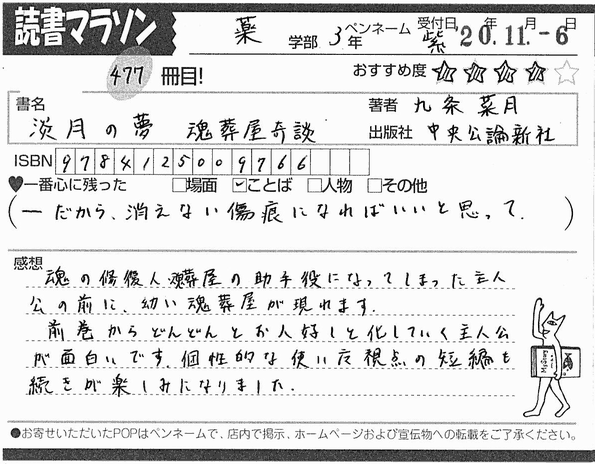 読書マラソン
薬 学部 3年 ペンネーム 紫 受付日 '20.11.-6 年 月 日
477 冊目!
おすすめ度 ★★★★☆
書名 淡月の夢 魂葬屋奇談
著者 九条菜月
出版社 中央公論新社
ISBN 9784125009766
♥一番心に残った □場面 ☑ことば □人物 □その他
(―だから、消えない傷痕になればいいと思って。)
感想
魂の修復人・魂葬屋の助手役になってしまった主人
公の前に、幼い魂葬屋が現れます。
前巻からどんどんとお人好しと化していく主人公
が面白いです。個性的な使い魔視点の短編も
続きが楽しみになりました。
●お寄せいただいたPOPはペンネームで、店内で掲示、ホームページおよび宣伝物への転載をご了承ください。